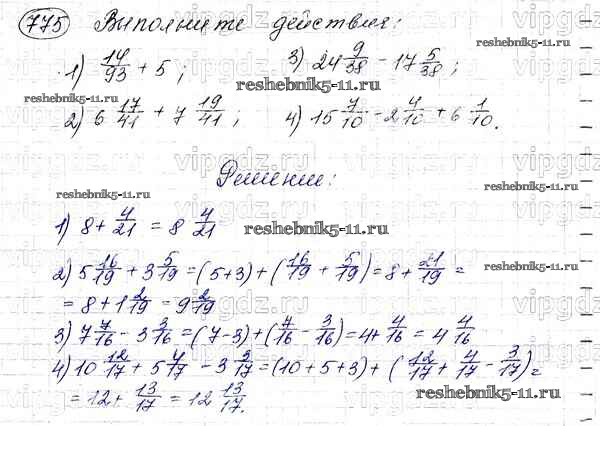 775 Выполните действия:
1) 14/93 + 5; 3) 24 9/38 - 17 5/38;
2) 6 17/41 + 7 19/41; 4) 15 7/10 - 2 4/10 + 6 1/10.
Решение:
1) 8 + 4/21 = 8 4/21
2) 5 16/19 + 3 5/19 = (5+3) + (16/19 + 5/19) = 8 + 21/19 =
= 8 + 1 2/19 = 9 2/19
3) 7 7/16 - 3 3/16 = (7-3) + (7/16 - 3/16) = 4 + 4/16 = 4 4/16
4) 10 12/17 + 5 4/17 - 3 3/17 = (10+5+3) + (12/17 + 4/17 - 3/17) =
= 12 + 13/17 = 12 13/17.
reshebnik5-11.ru
reshebnik5-11.ru
reshebnik5-11.ru
reshebnik5-11.ru
reshebnik5-11.ru
reshebnik5-11.ru
reshebnik5-11.ru
vipgdz.ru